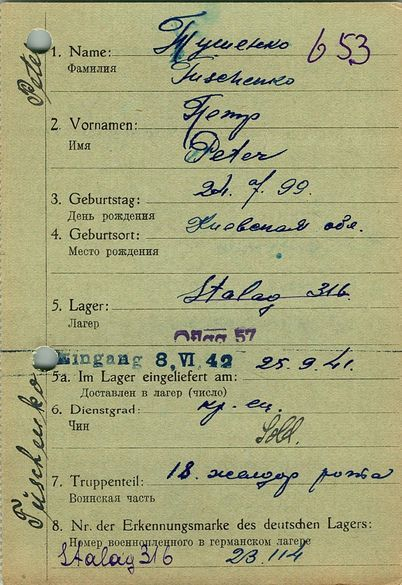 653
1. Name: Тушенко
Фамилия Tuschenko
2. Vornamen: Петр
Имя Peter
3. Geburtstag: 24. 7. 99.
День рождения
4. Geburtsort: Киевская обл.
Место рождения
5. Lager: Stalag 316.
Лагер
Oflag 57
Eingang 8. VI. 42
5a. Im Lager eingeliefert am: 25.9.41.
Доставлен в лагер (число)
6. Dienstgrad: кр-ец
Чин Sold.
7. Truppenteil: 18. желдор рота
Воинская часть
8. Nr. der Erkennungsmarke des deutschen Lagers:
Номер военнопленного в германском лагере
Stalag 316 23114
Peter
Tüschenko